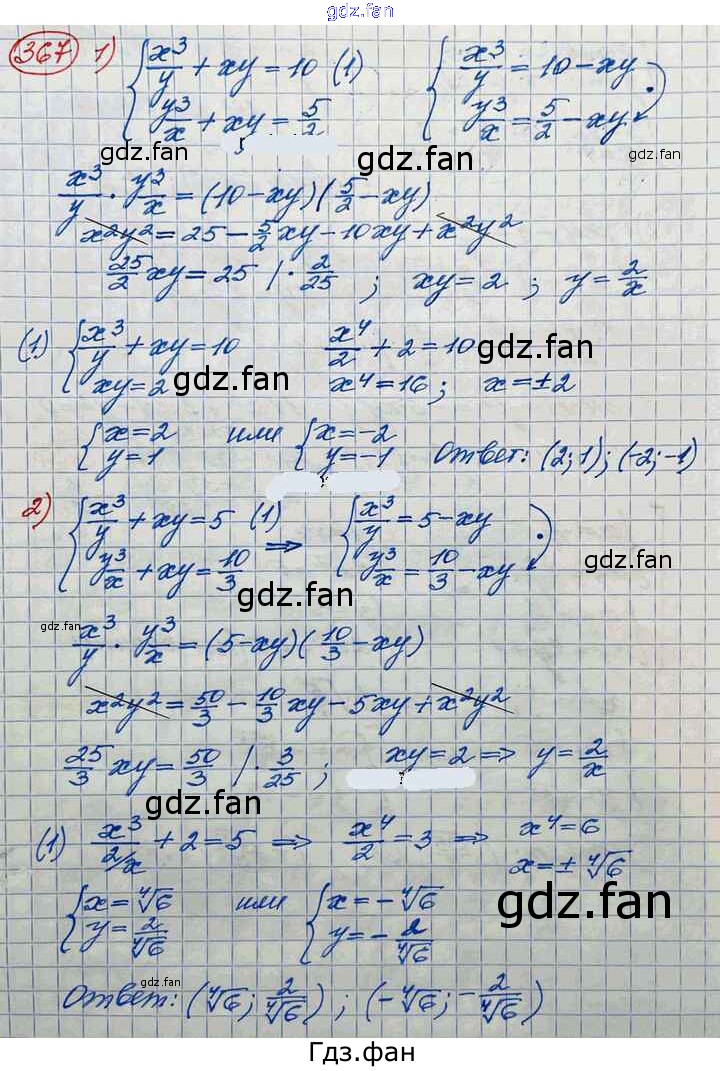 gdz.fan
367 1) { x³/y + xy = 10 (1) { x³/y = 10 - xy
y³/x + xy = 5/2 y³/x = 5/2 - xy ·
gdz.fan gdz.fan gdz.fan
x³/y · y³/x = (10 - xy)(5/2 - xy)
x²y² = 25 - 5/2 xy - 10xy + x²y²
25/2 xy = 25 | · 2/25 ; xy = 2 ; y = 2/x
(1) { x³/y + xy = 10 x⁴/2 + 2 = 10 gdz.fan
xy = 2 gdz.fan x⁴ = 16 ; x = ±2
{ x = 2 или { x = -2
y = 1 y = -1 Ответ: (2; 1); (-2; -1)
2) { x³/y + xy = 5 (1) { x³/y = 5 - xy
y³/x + xy = 10/3 ⇒ y³/x = 10/3 - xy · gdz.fan
gdz.fan
gdz.fan x³/y · y³/x = (5 - xy)(10/3 - xy)
x²y² = 50/3 - 10/3 xy - 5xy + x²y²
25/3 xy = 50/3 | · 3/25 ; xy = 2 ⇒ y = 2/x
gdz.fan
(1) x³/2/x + 2 = 5 ⇒ x⁴/2 = 3 ⇒ x⁴ = 6
x = ± ⁴√6
gdz.fan
{ x = ⁴√6 или { x = - ⁴√6
y = 2/⁴√6 y = - 2/⁴√6
gdz.fan gdz.fan
Ответ: (⁴√6; 2/⁴√6) ; (-⁴√6; - 2/⁴√6)
gdz.fan gdz.fan
Гдз.фан